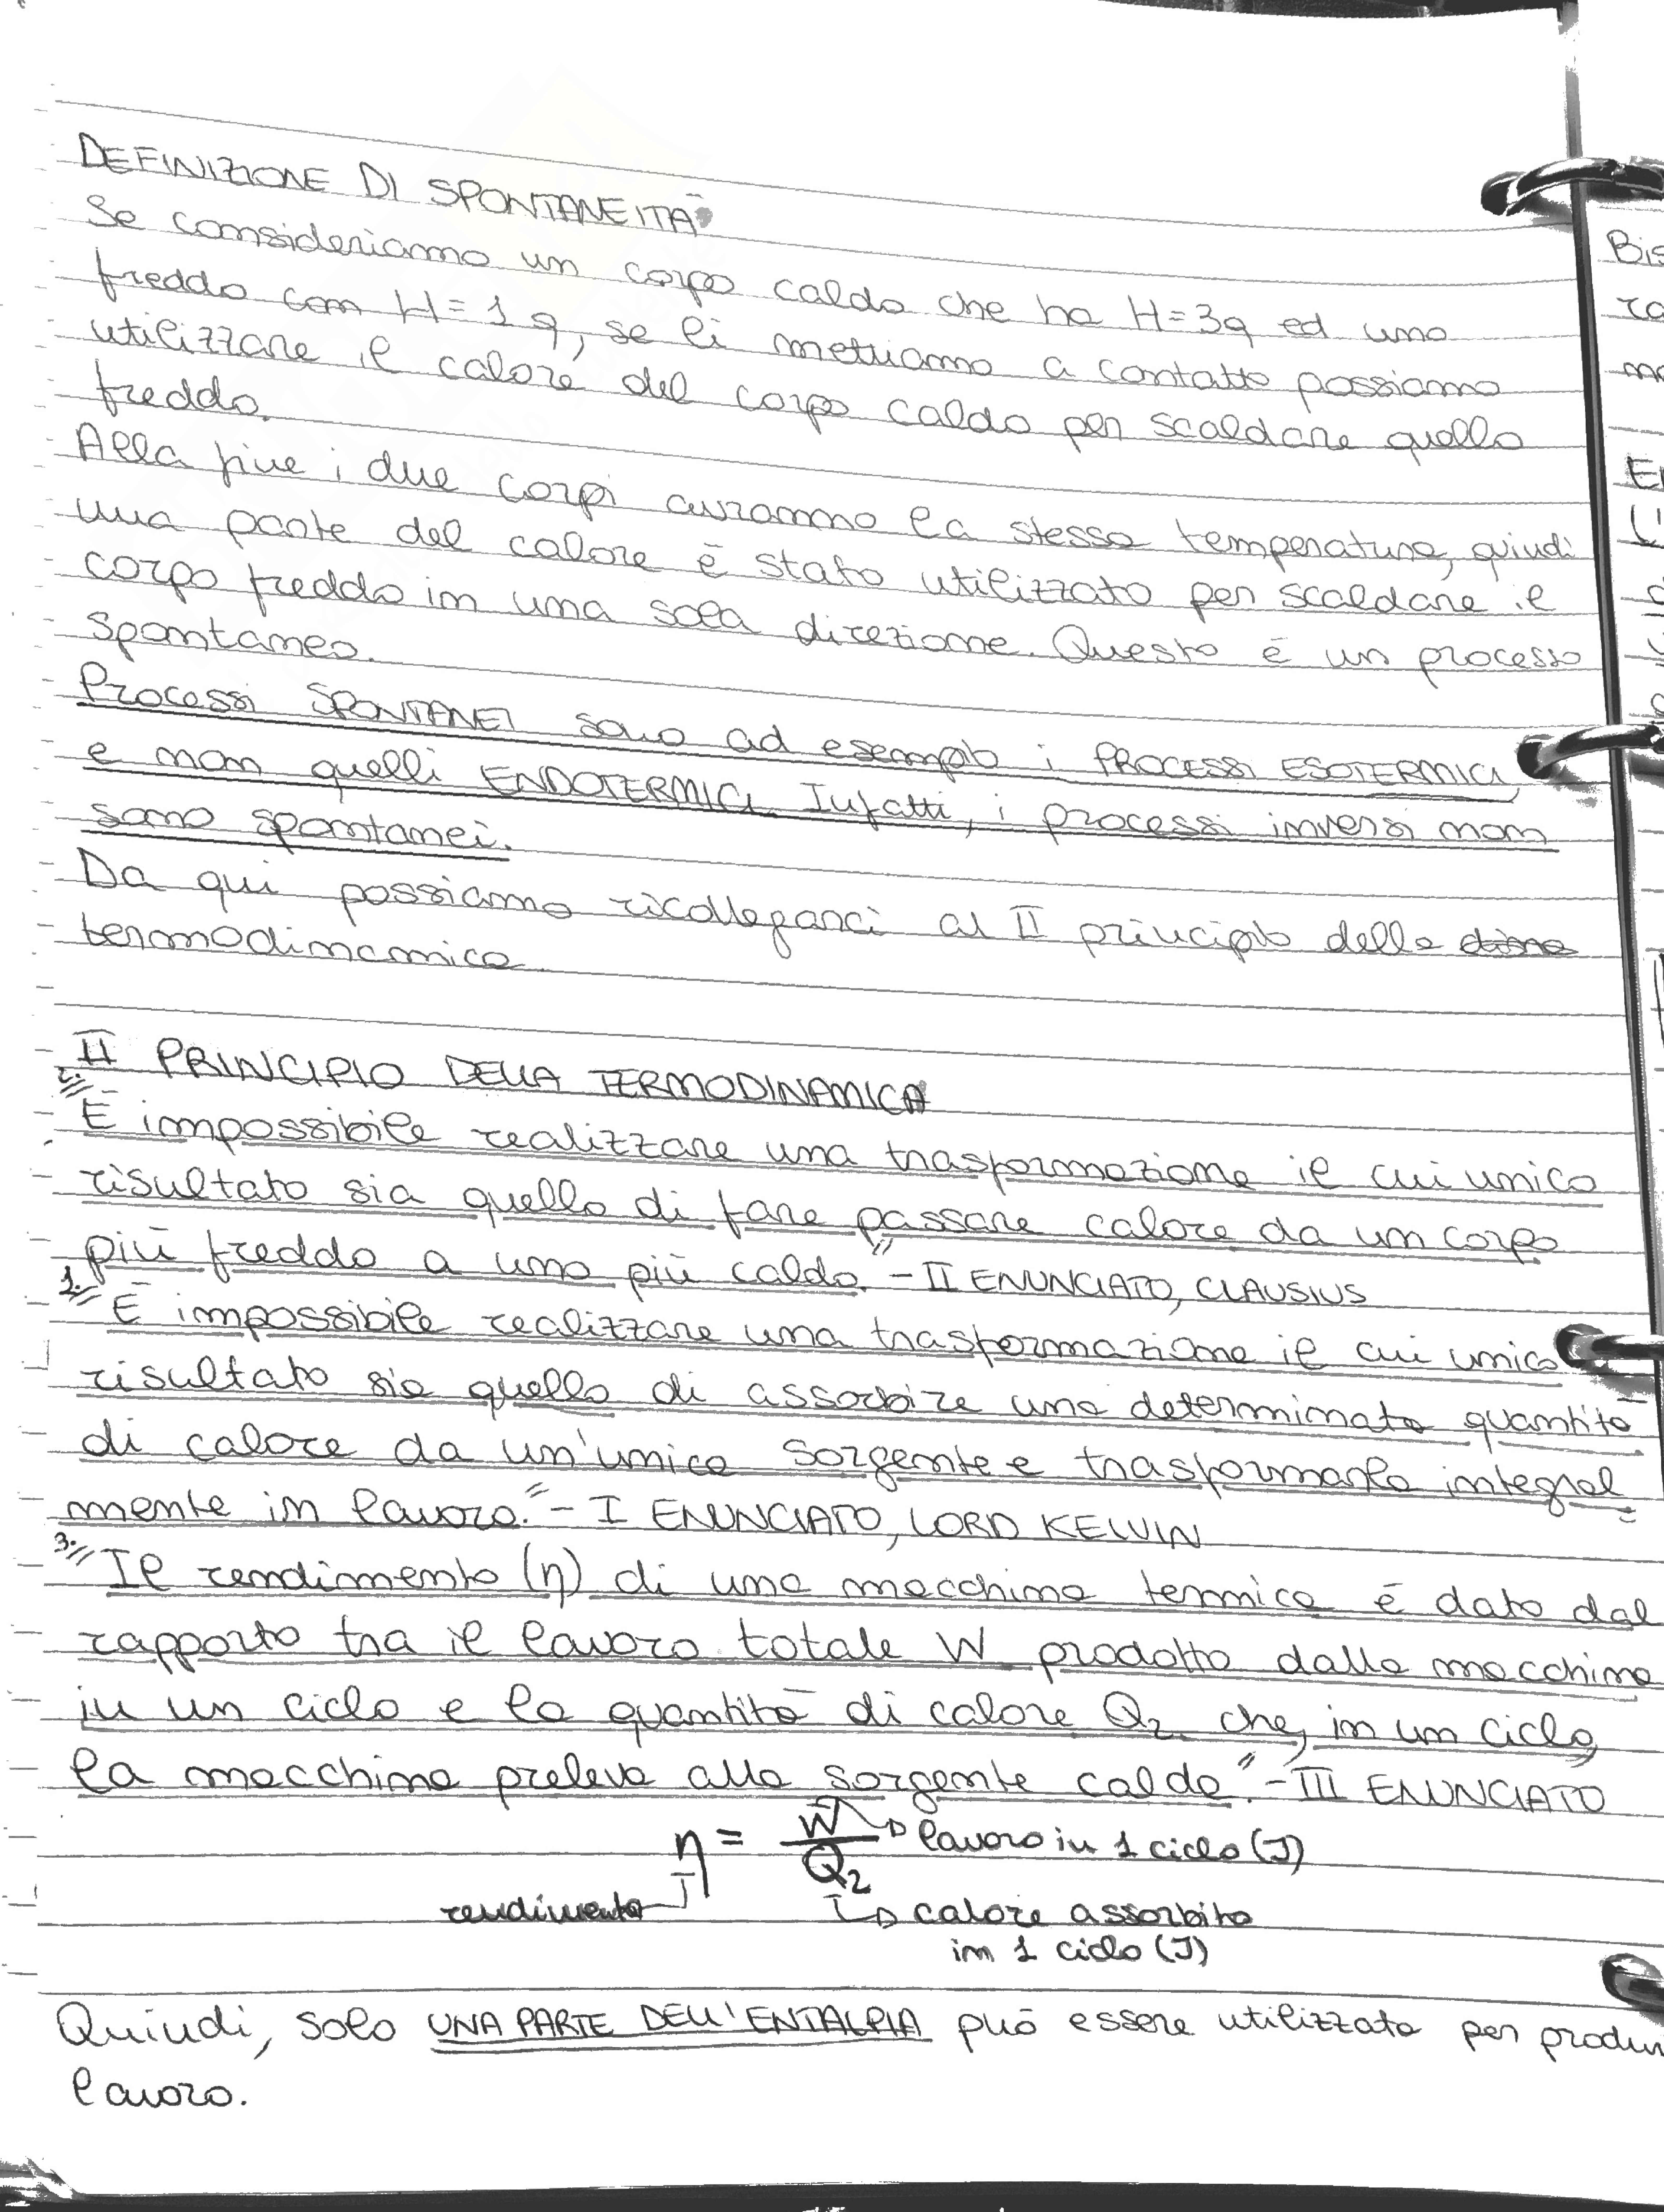 DEFINIZIONE DI SPONTANEITÀ
Se consideriamo un corpo caldo che ha H=3q ed uno
freddo con H=1q, se li mettiamo a contatto possiamo
utilizzare il calore del corpo caldo per scaldare quello
freddo.
Alla fine i due corpi avranno la stessa temperatura, quindi
una parte del calore è stato utilizzato per scaldare il
corpo freddo in una sola direzione. Questo è un processo
spontaneo.
Processi SPONTANEI sono ad esempio i PROCESSI ESOTERMICI,
e non quelli ENDOTERMICI. Infatti, i processi inversi non
sono spontanei.
Da qui possiamo ricollegarci al II principio della
termodinamica.
II PRINCIPIO DELLA TERMODINAMICA
2. "È impossibile realizzare una trasformazione il cui unico
risultato sia quello di fare passare calore da un corpo
più freddo a uno più caldo." - II ENUNCIATO, CLAUSIUS
1. "È impossibile realizzare una trasformazione il cui unico
risultato sia quello di assorbire una determinata quantità
di calore da un'unica sorgente e trasformarlo integral=
mente in lavoro." - I ENUNCIATO, LORD KELVIN
3. "Il rendimento (η) di una macchina termica è dato dal
rapporto tra il lavoro totale W prodotto dalla macchina
in un ciclo e la quantità di calore Q2 che, in un ciclo,
la macchina preleva alla sorgente calda." - III ENUNCIATO
η = W/Q2 lavoro in 1 ciclo (J)
rendimento calore assorbito
in 1 ciclo (J)
Quindi, solo UNA PARTE DELL'ENTALPIA può essere utilizzata per
lavoro.
Bis